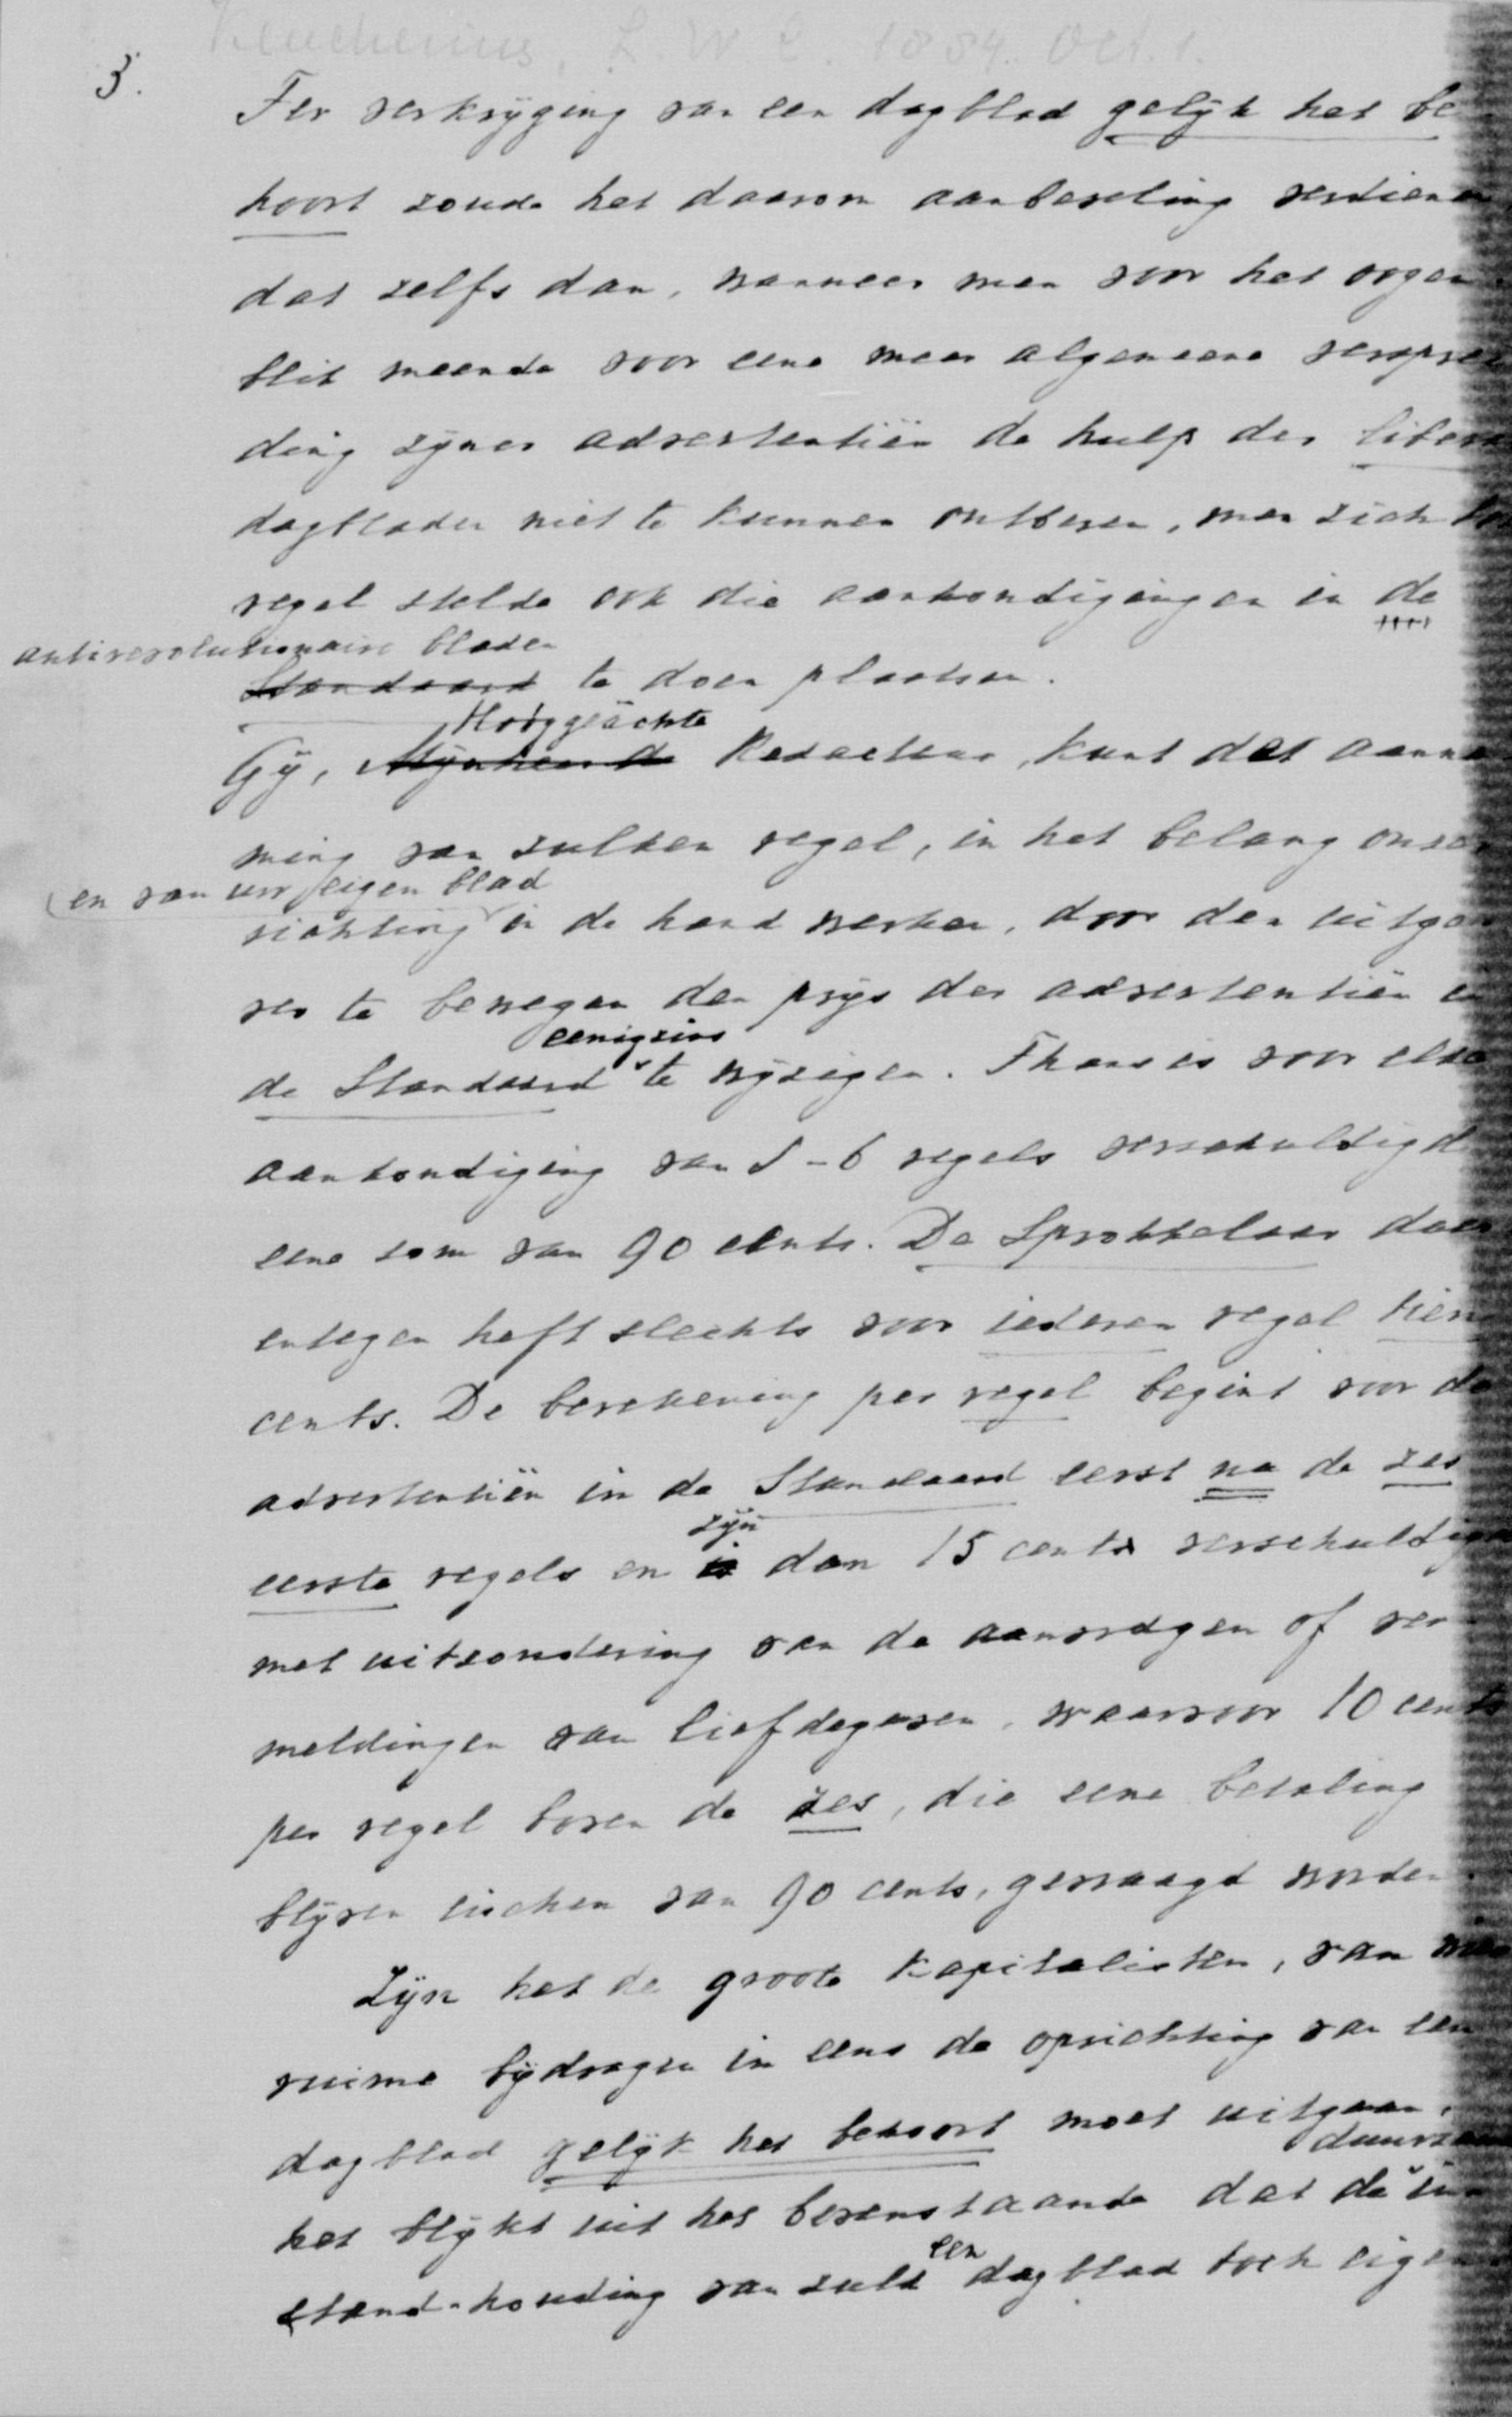 Keuchenius, L. W. C. 1884. Oct. 1.
3.
Ter verkrijging van een dagblad gelijk het be
hoort zoude het daarom aanbeveling verdienen
dat zelfs dan, wanneer men voor het oogen
blik meende voor eene meer algemeene versprei
ding zijner advertentiën de hulp der liberale
dagbladen niet te kunnen ontberen, men zich tot
regel stelde ook die aankondigingen in de
antirevolutionaire bladen
Standaard te doen plaatsen.
Hooggeachte
Gij, Mijnheer de Redacteur, kunt dat aanne
ming van zulken regel, in het belang onzer
(en van uw eigen blad
richting in de hand werken, door den uitge
ver te bewegen den prijs der advertentiën in
eenigzins
de Standaard te wijzigen. Thans is voor elke
aankondiging van 1-6 regels verschuldigd
eene som van 90 cents. De Sprokkelaar daar
entegen heft slechts voor iederen regel tien
cents. De berekening per regel begint voor de
advertentiën in de Standaard eerst na de zes
zijn
eerste regels en is dan 15 cents verschuldigd
met uitzondering van de aanvragen of ver
meldingen van liefdegaven, waarvoor 10 cents
per regel boven de zes, die eene betaling
blijven eischen van 90 cents, gevraagd worden.
Zijn het de groote kapitalisten, van wie
ruime bijdragen in eens de oprichting van een
dagblad gelijk het behoort moet uitgaan,
duurzame
het blijkt uit het bovenstaande dat de in
een
stand-houding van zulk dagblad toch eigen